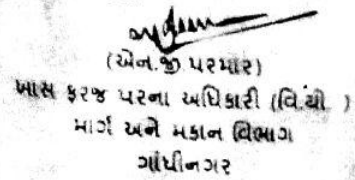 (એન.જી પરમાર)
ખાસ ફરજ પરના અધિકારી (વિ.યો )
માર્ગ અને મકાન વિભાગ
ગાંધીનગર